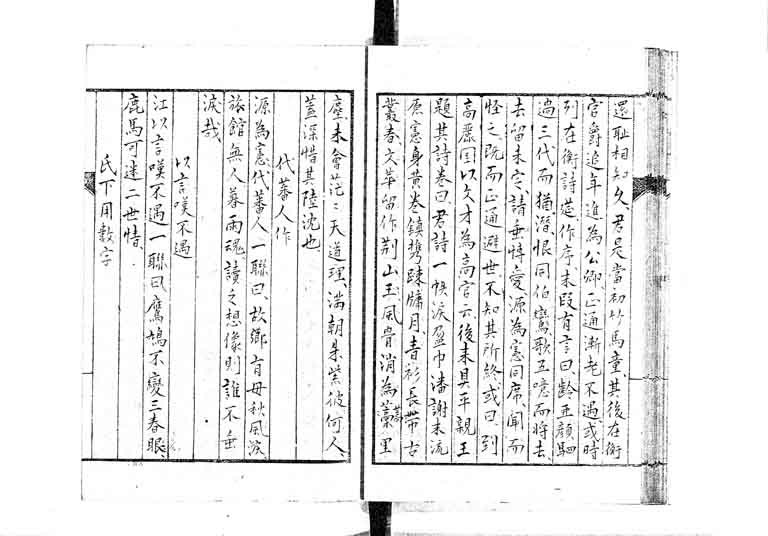 還恥相知久、君是當初竹馬童、其後在衡
官爵追年進為公卿、正通漸老不遇或時
列在衡詩莚作序、末段有言曰齡亞顏駟
過三代而猶潛恨同伯鸞歌五噫而將去、
去留未定、請垂憐愛源為憲同席、聞而
怪之既而正通避世不知其所終或曰、到
高麗国以久才為高官云後來具平親王
題其詩卷曰、君詩一帙淚盈巾潘謝末流
原憲身黃卷鎮携踈牖月、青衫長帶古
叢春、文華留作荆山玉、風骨消為蒿里
塵未會茫ミ天道理、滿朝朱紫彼何人、
蓋深惜其陸沈也、
代蕃人作
源為憲代蕃人一聯曰、故鄉有母秋風淚
旅館無人暮雨魂、讀之想像則誰不垂
淚哉
以言嘆不遇
江以言嘆不遇一聯曰、鷹鳩不變三春眼、
鹿馬可迷二世情、
氏下用數字